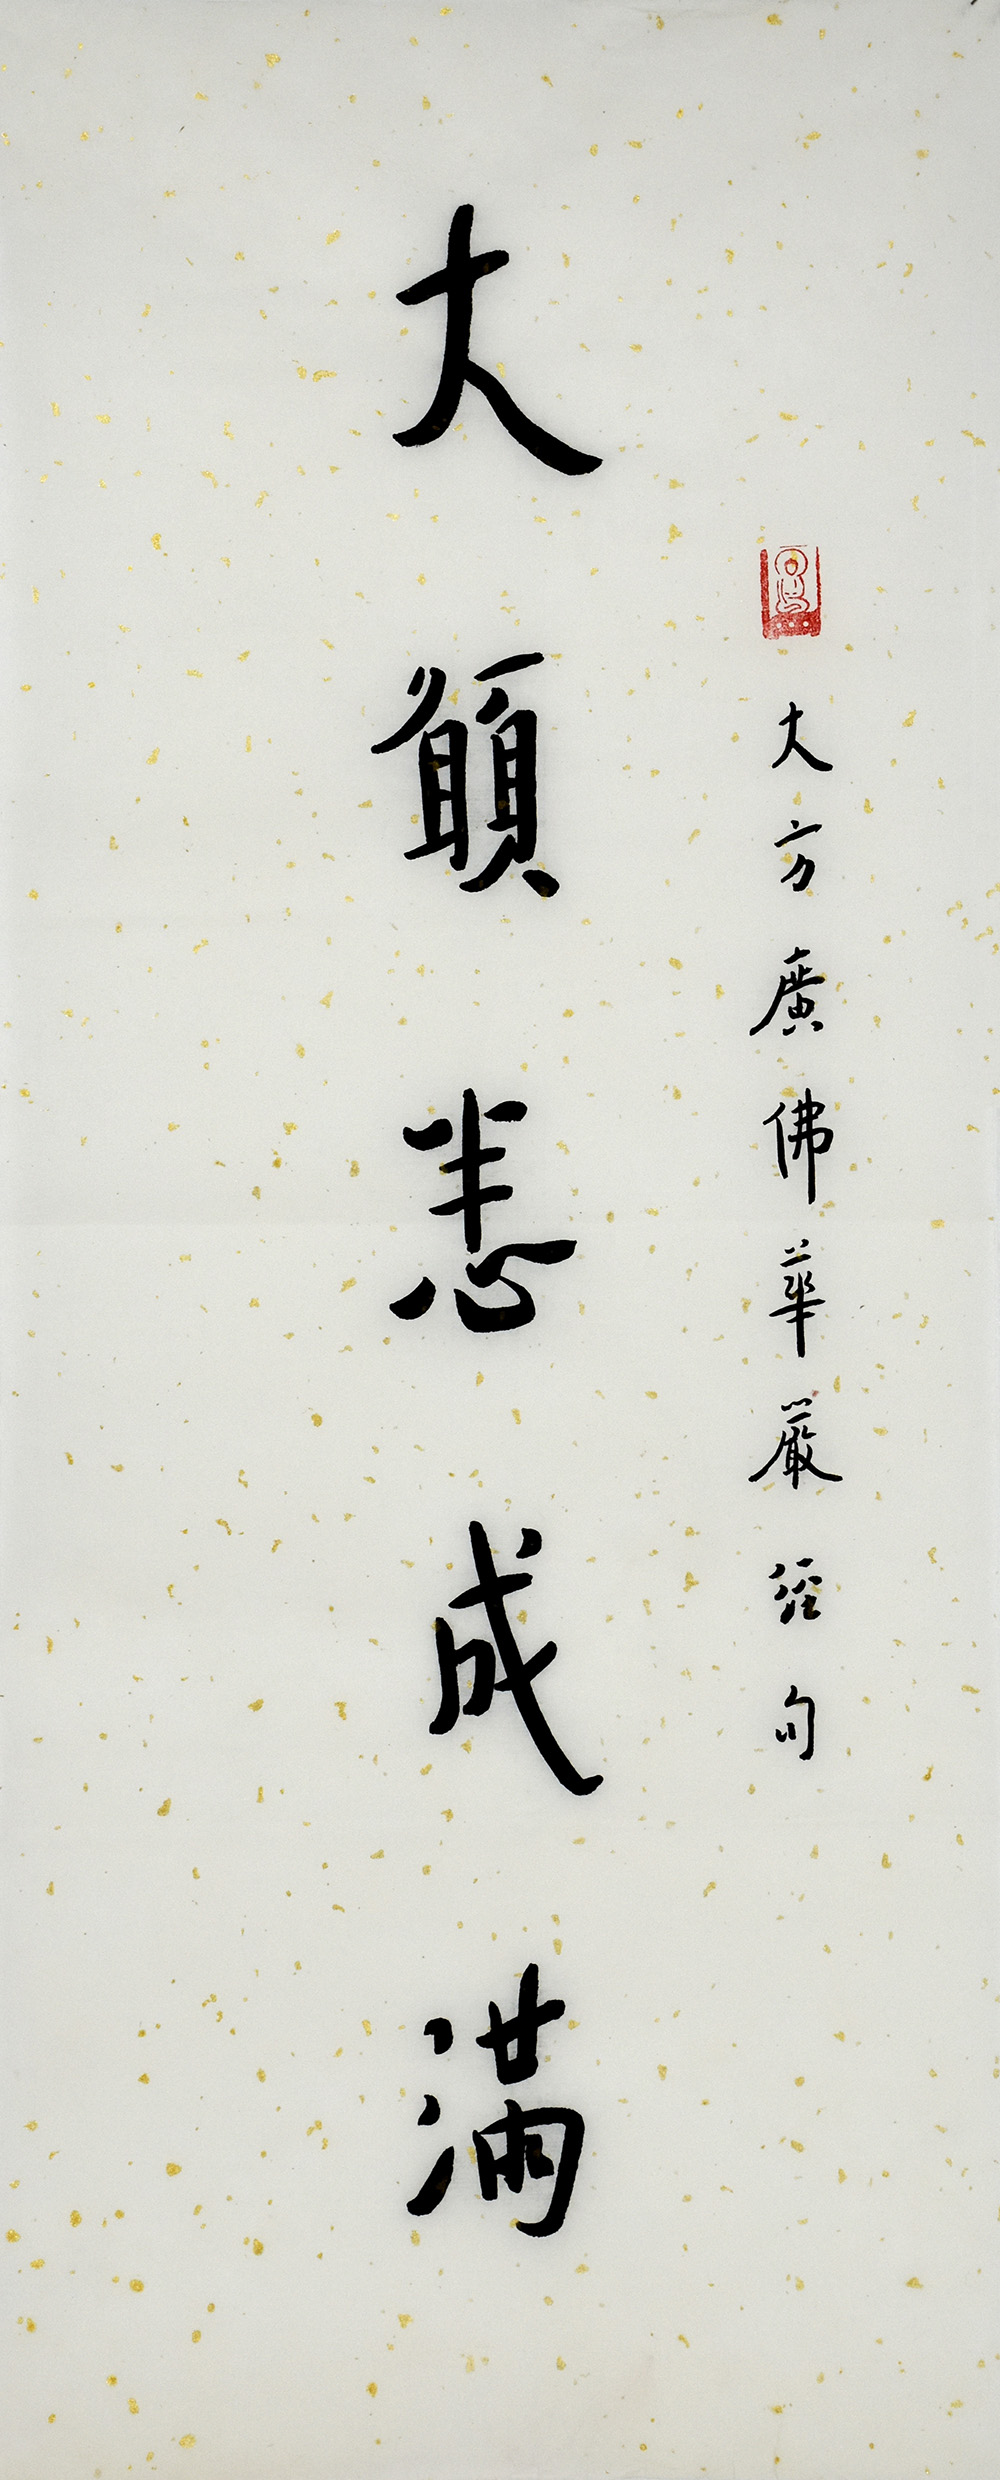 大方廣佛華嚴經句
大願悉成滿